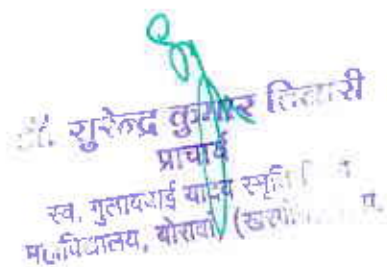 डॉ. सुरेन्द्र कुमार तिवारी
प्राचार्य
स्व. गुलाबबाई यादव स्मृति
महाविद्यालय, बोरावां, (खरगोन